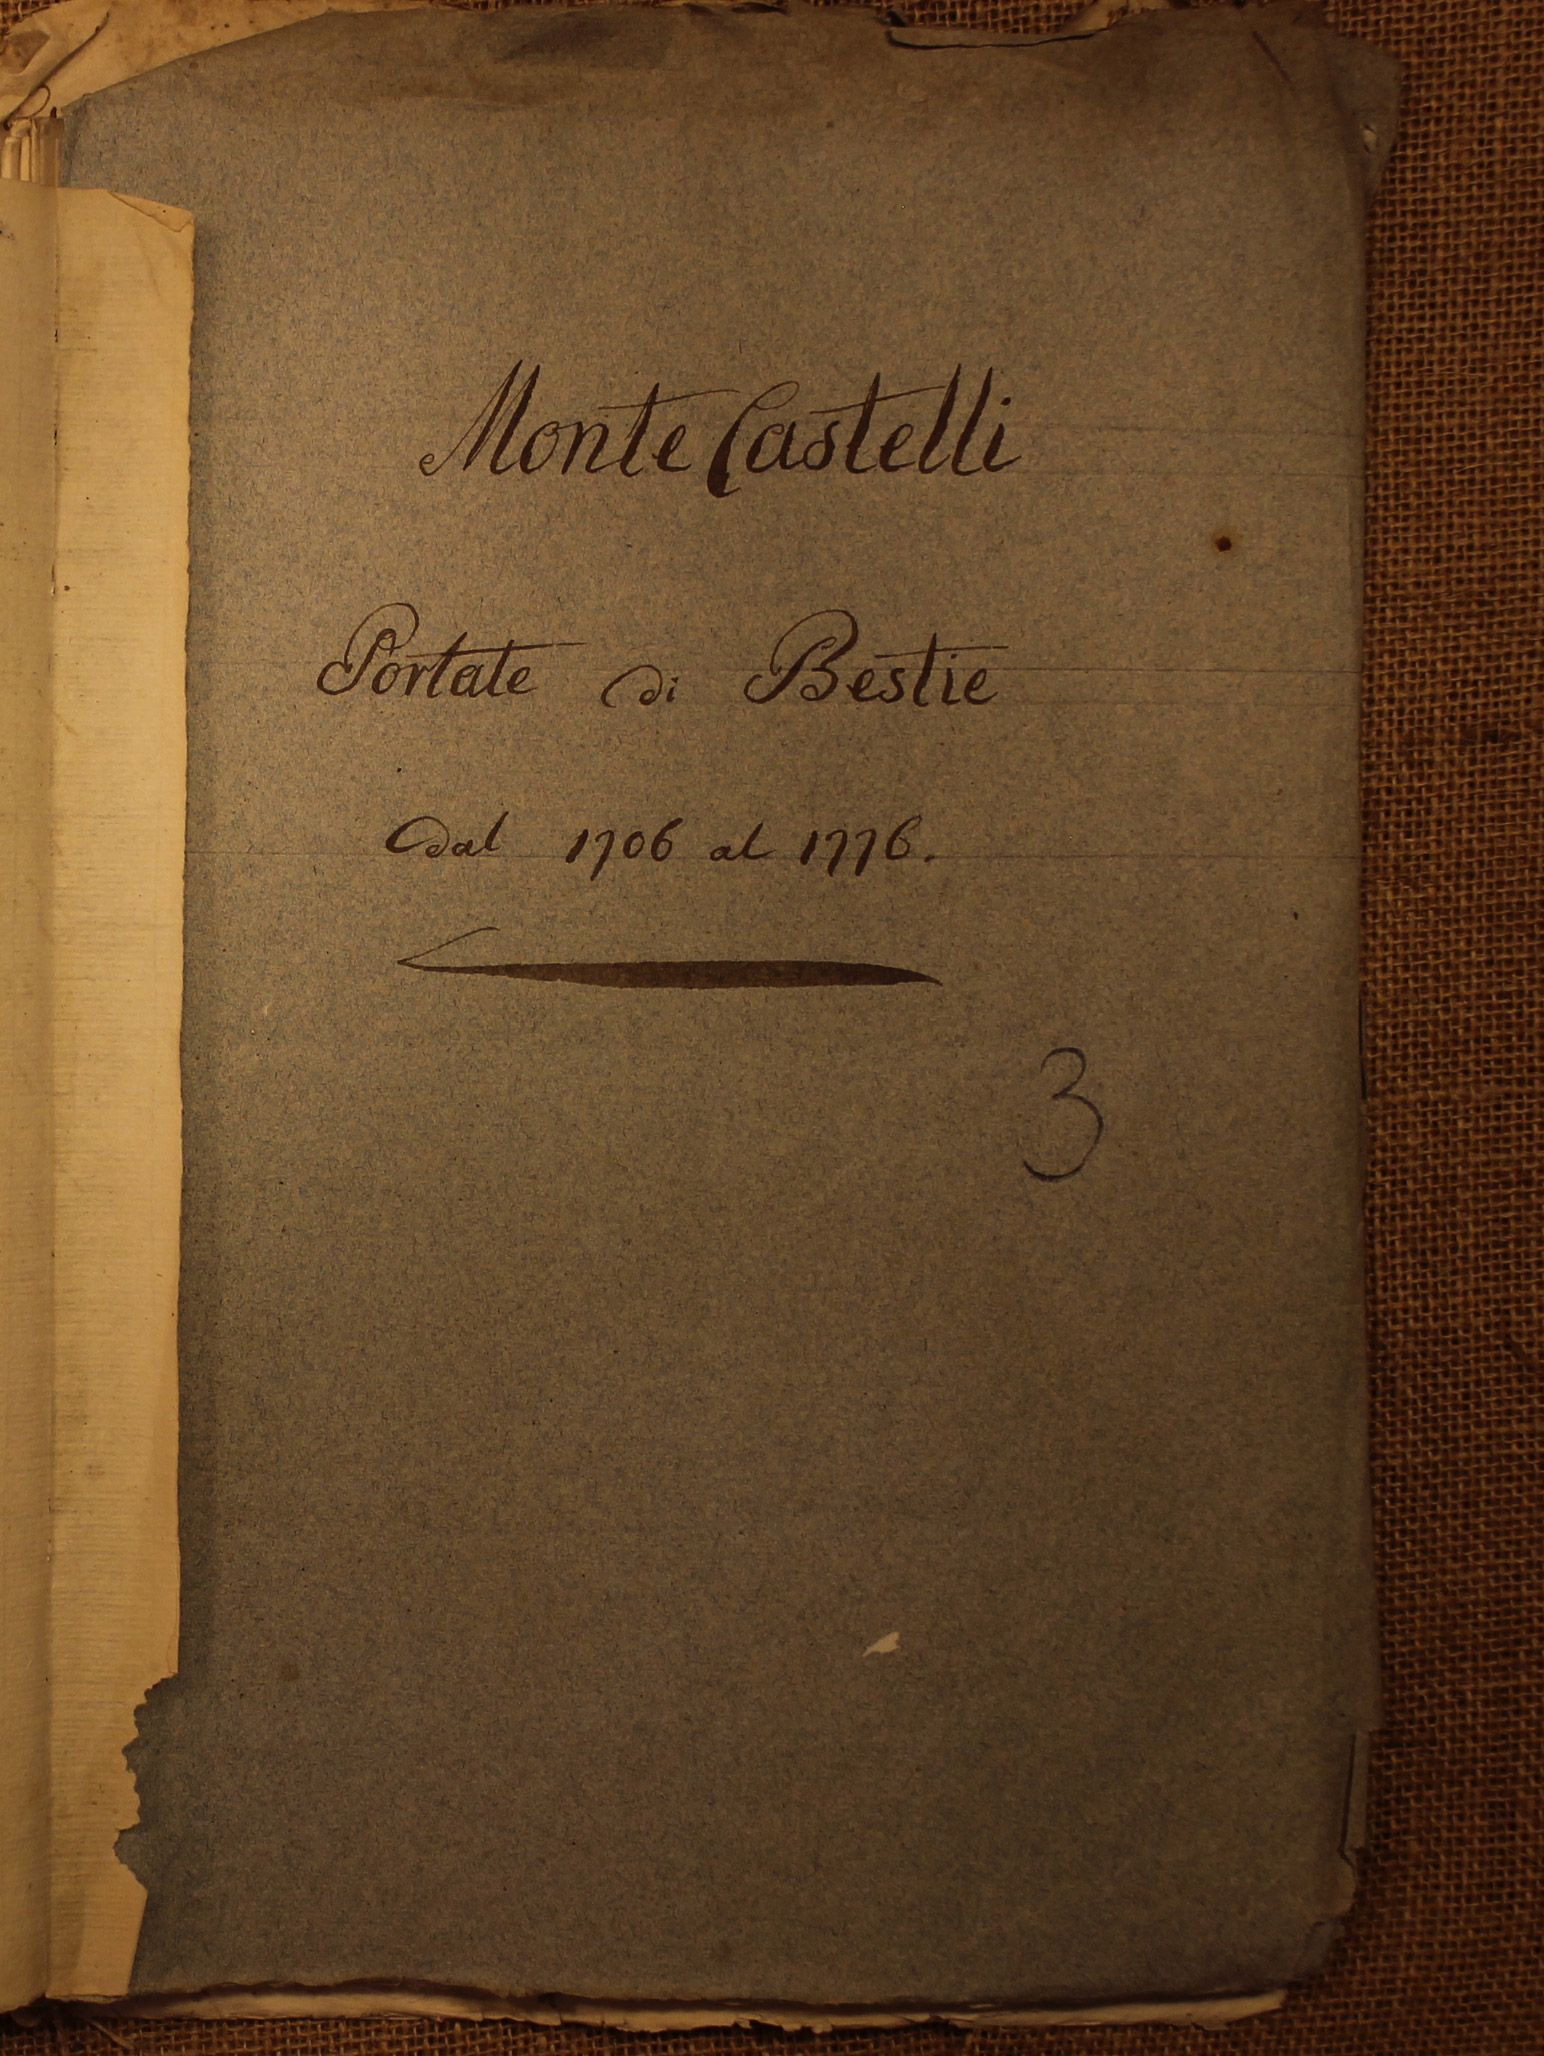 Monte Castelli
Portate di Bestie
dal 1706 al 1776.
3